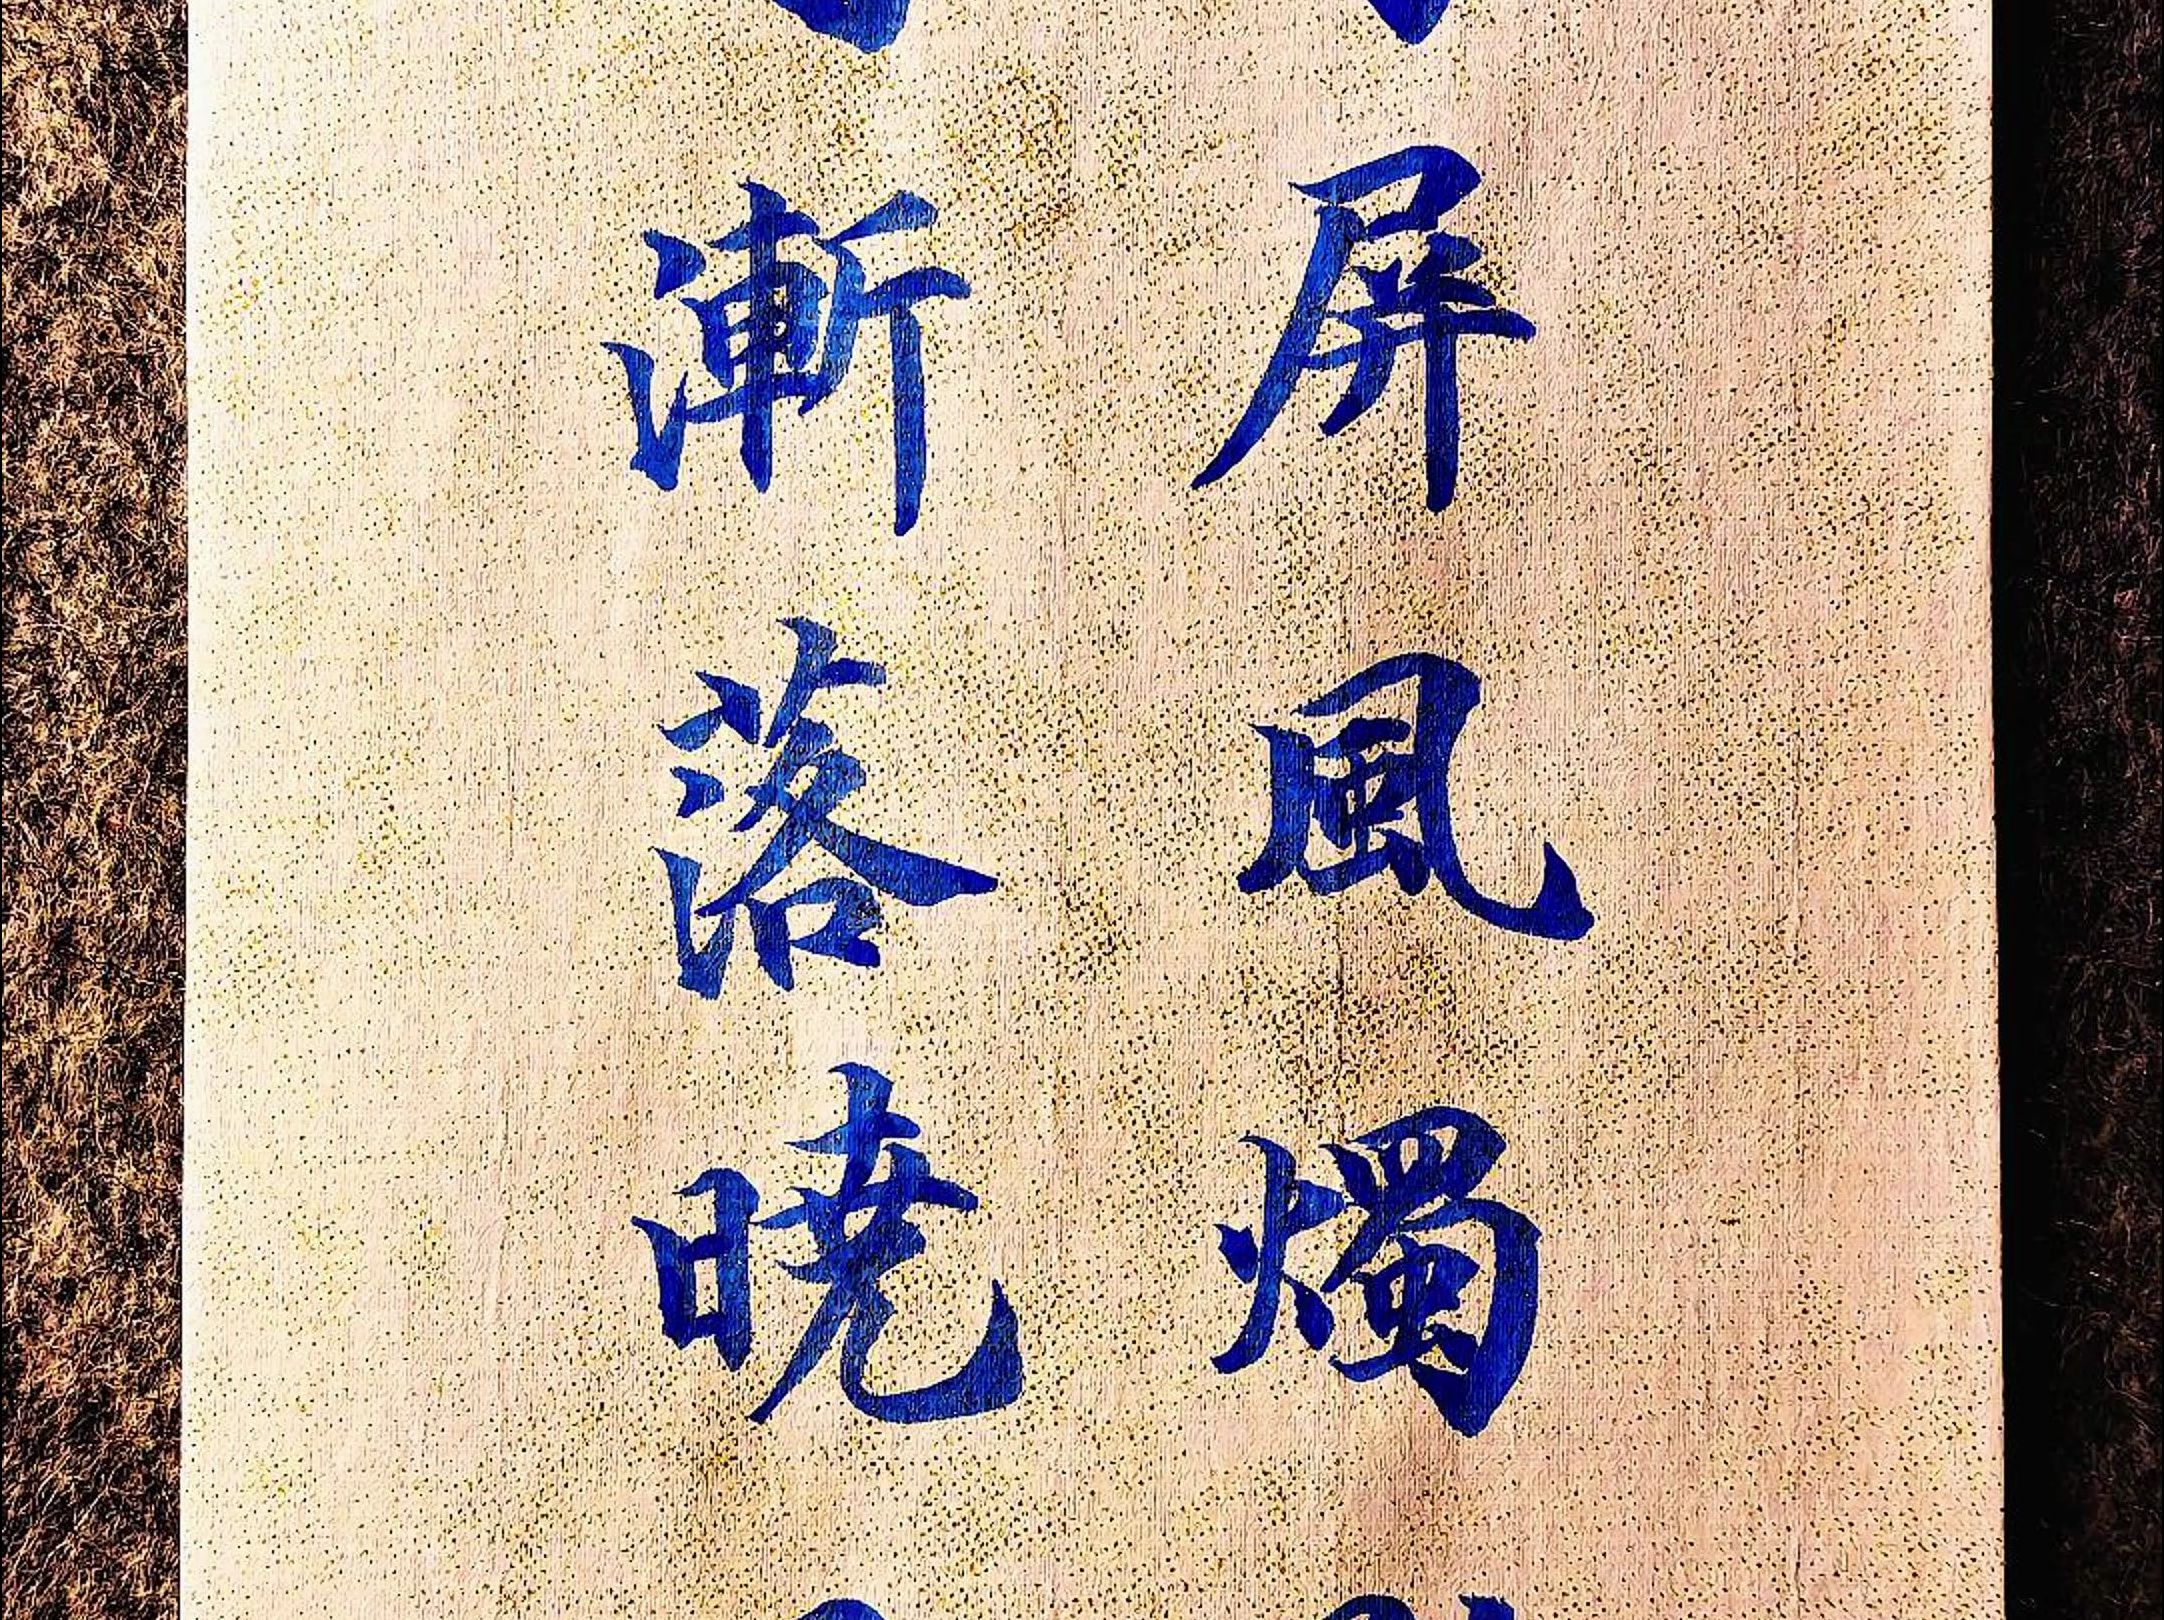 屏風燭
漸落曉